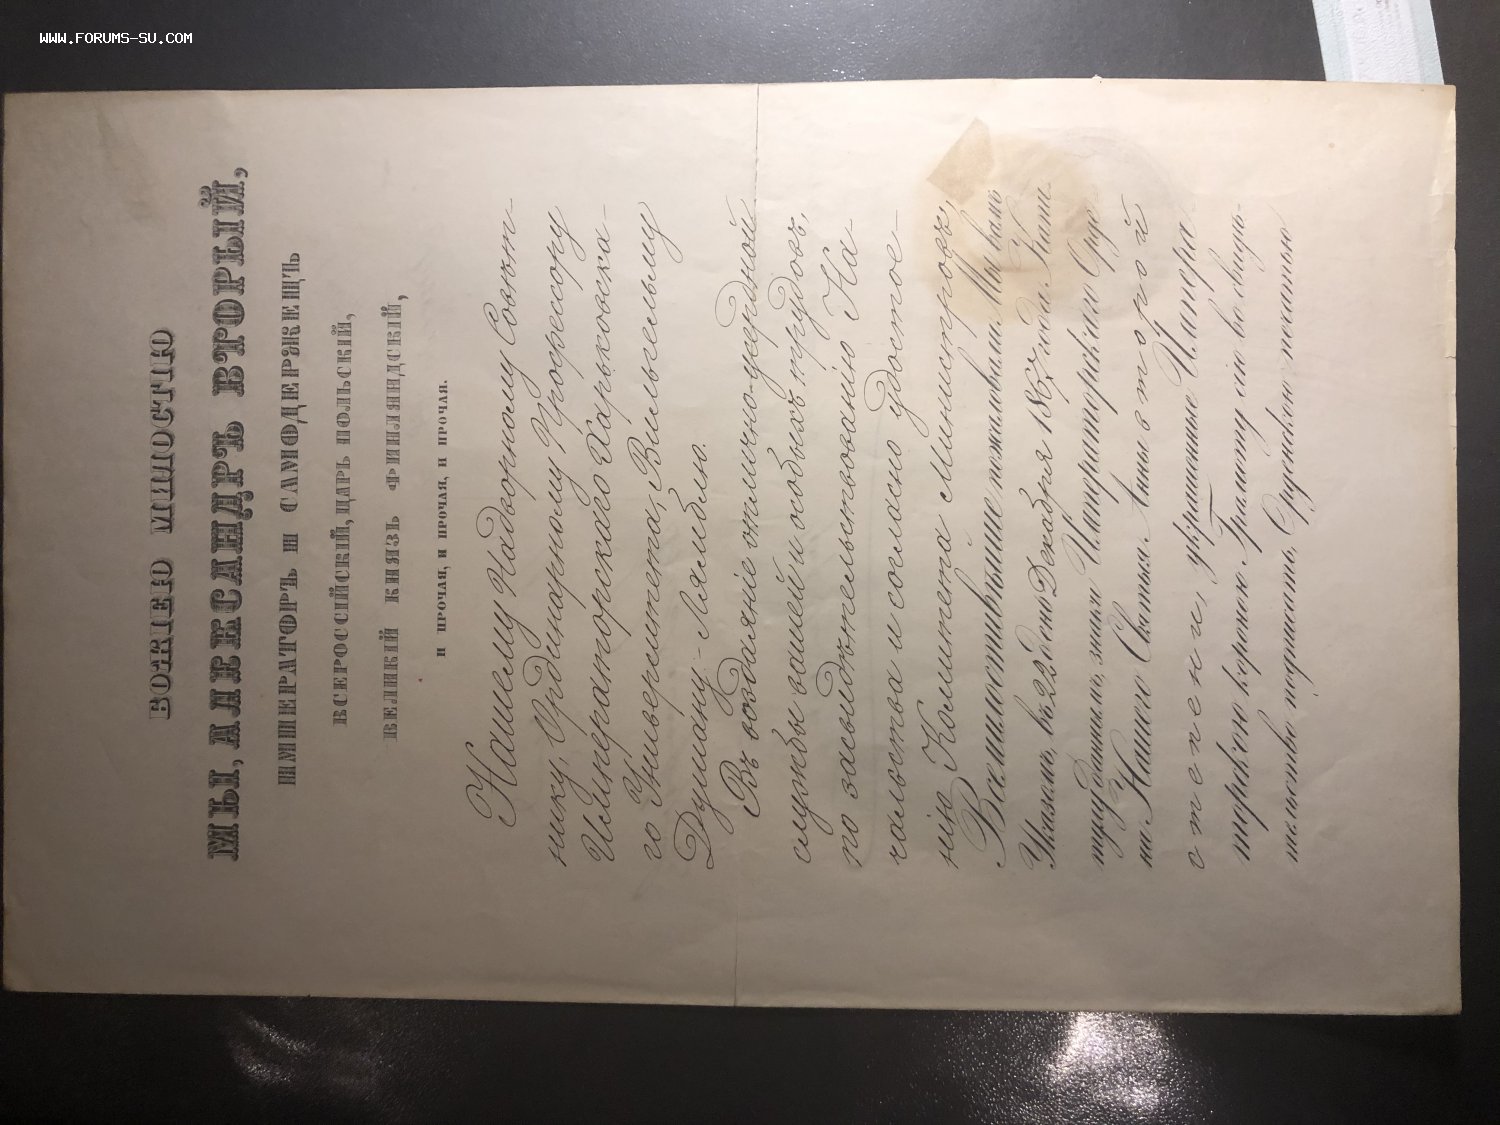 WWW.FORUMS-SU.COM
БОЖІЕЮ МИЛОСТІЮ
МЫ, АЛЕКСАНДРЪ ВТОРЫЙ,
ИМПЕРАТОРЪ И САМОДЕРЖЕЦЪ
ВСЕРОССІЙСКІЙ, ЦАРЬ ПОЛЬСКІЙ,
ВЕЛИКІЙ КНЯЗЬ ФИНЛЯНДСКІЙ,
И ПРОЧАЯ, И ПРОЧАЯ, И ПРОЧАЯ.
Нашему Надворному Совѣт-
нику, Ординарному Профессору
Императорскаго Харьковска-
го Университета, Вильгельму
Душану-Лямблю.
Въ воздаяніе отлично-усердной
службы вашей и особыхъ трудовъ,
по засвидѣтельствованію На-
чальства и согласно удостое-
нію Комитета Министровъ,
Всемилостивѣйше пожаловали Мы васъ
Указомъ, въ 22 день Декабря года, Капи-
тулу даннымъ, знаки Императорскаго Орде-
на Нашего Святыя Анны второй
степени, украшенные Импера-
торскою короною. Грамоту сію во свидѣ-
тельство подписать, Орденскою печатью